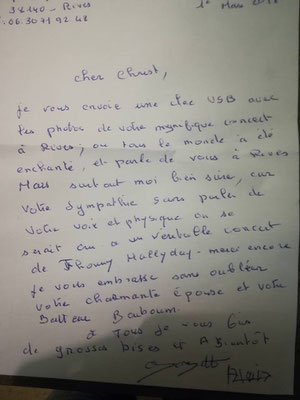 38140 - Rives
: 06.30 71 92 48
1e Mars
Cher Christ,
je vous envoie une clec USB avec
les photos de votre magnifique concert
à Rives; ou tous le monde a été
enchanté, et parle de vous à Rives
Mais surtout moi bien sûre, car
votre sympathie sans parler de
votre voix et physique on se
serait cru a un veritable concert
de Jhonny Hallyday - merci encore
je vous embrasse sans oublier
votre charmante épouse et votre
Batteur Bouboum.
à Tous je vous fais
de grosses bises et A Bientôt